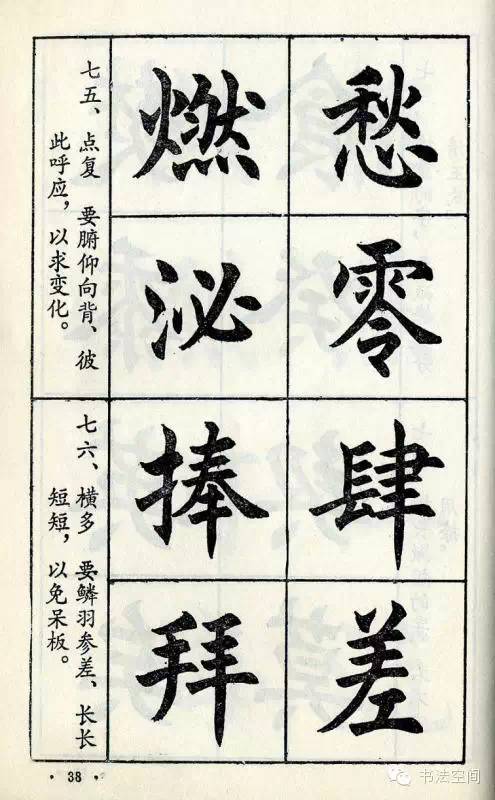 愁零
燃泌
七五、点复 要腑仰向背、彼
此呼应，以求变化。
肆差
捧拜
七六、横多 要鳞羽参差、长长
短短，以免呆板。
· 38 ·
书法空间